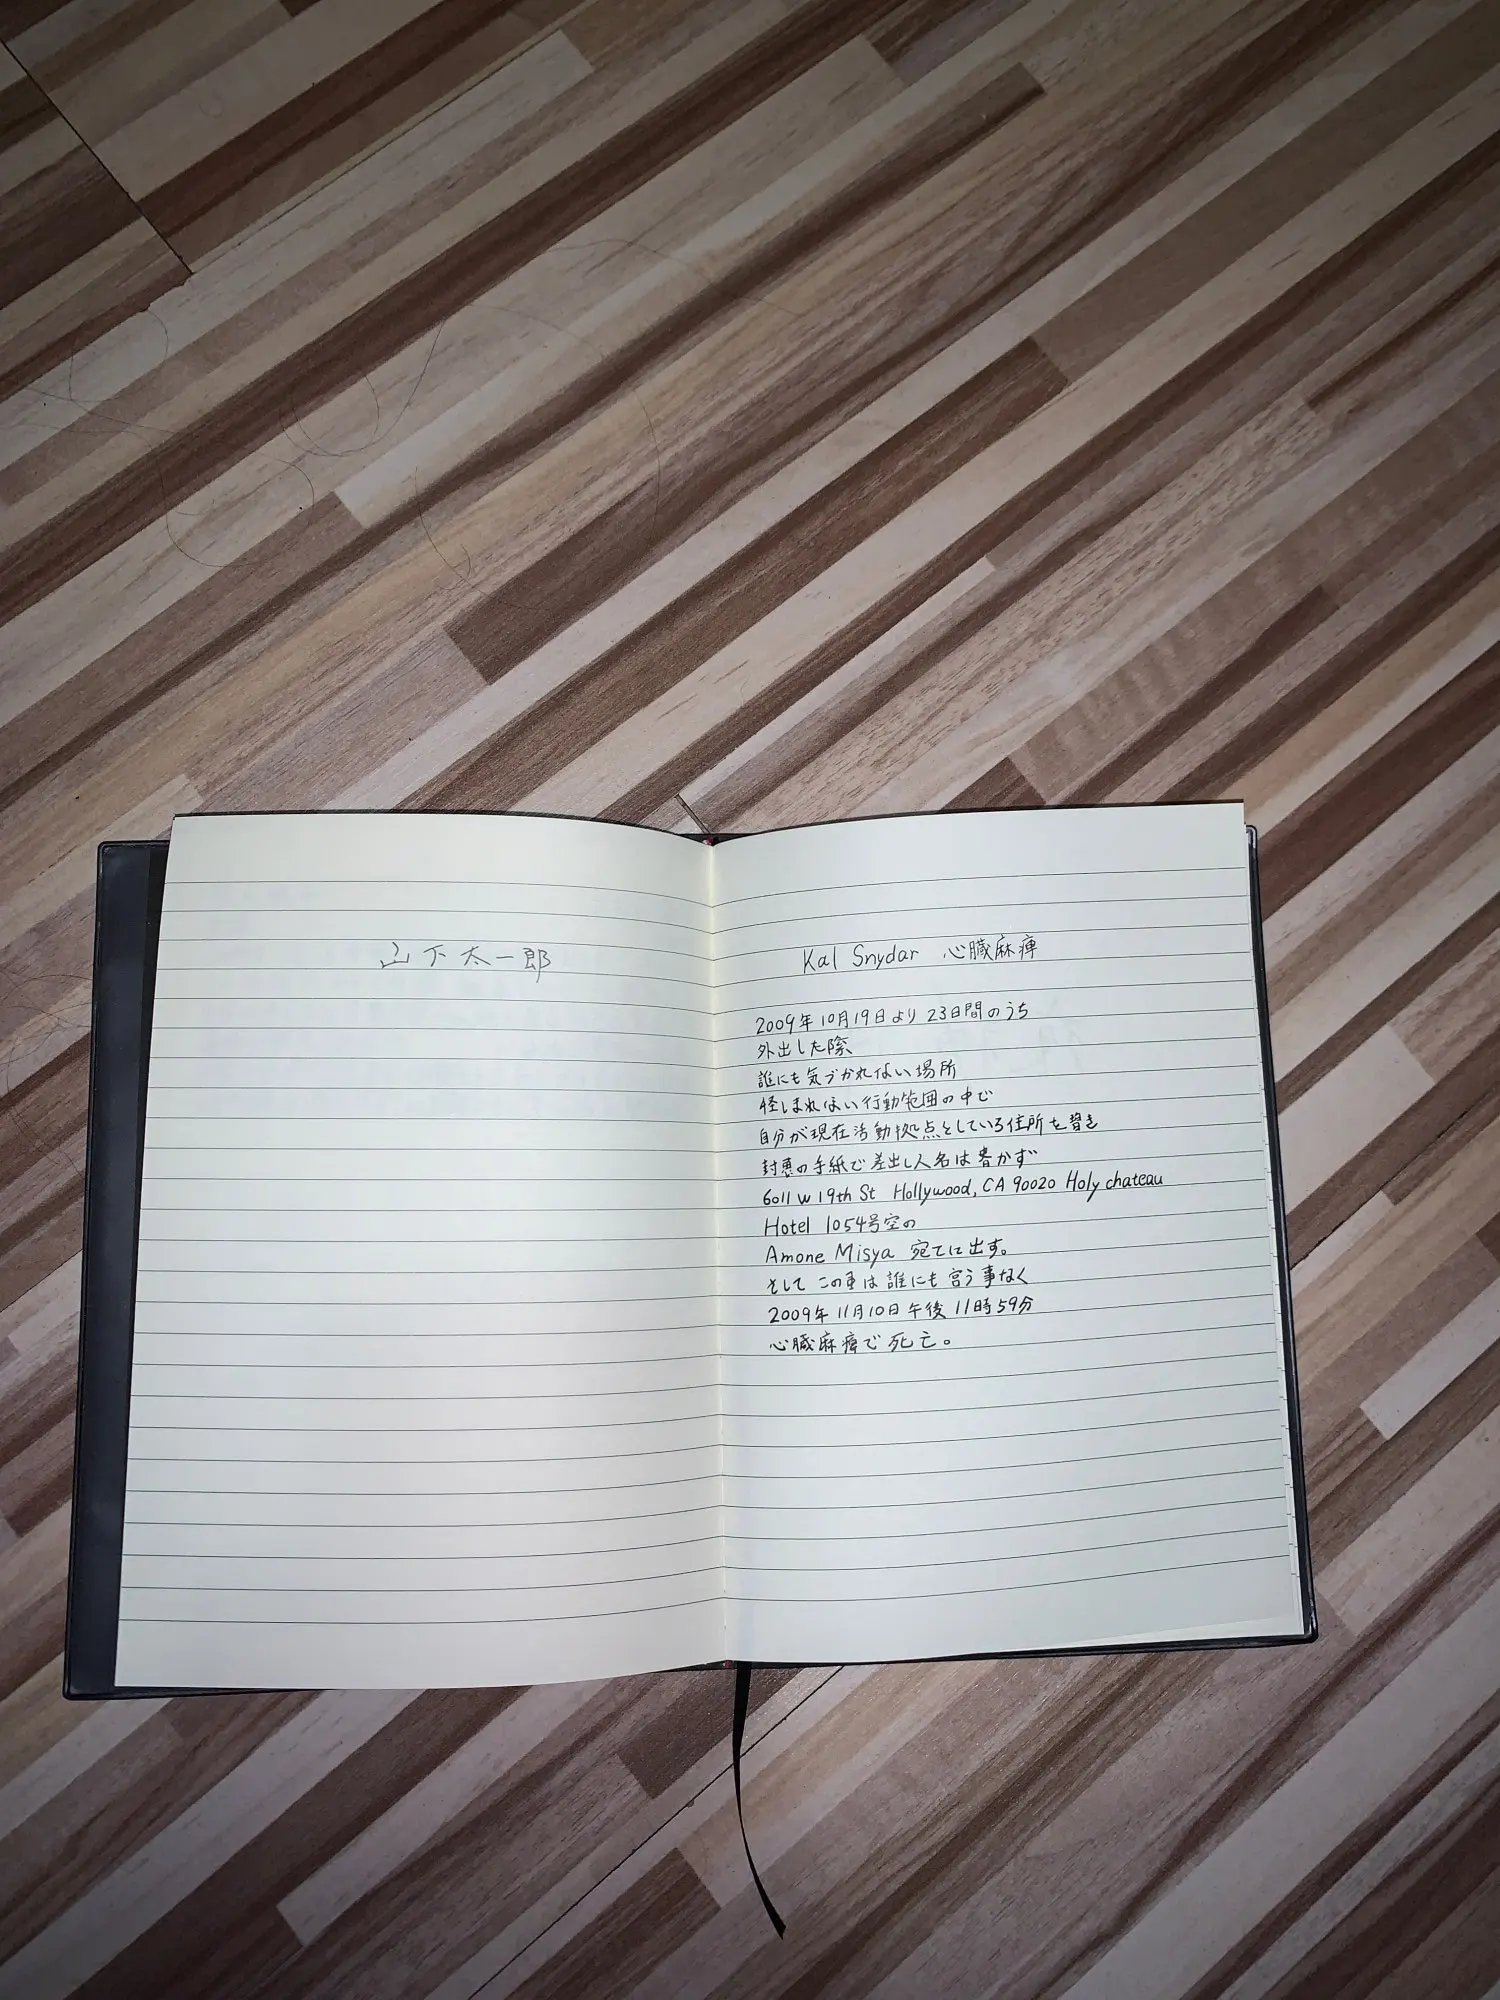 山下太一郎
Kal Snydar 心臓麻痺
2009年10月19日より23日間のうち
外出した際
誰にも気づかれない場所
怪しまれない行動範囲の中で
自分が現在活動拠点としている住所を書き
封書の手紙で差出し人名は書かず
6011 W 19th St Hollywood, CA 90020 Holy chateau
Hotel 1054号空の
Amone Misya 宛てに出す。
そしてこの事は誰にも言う事なく
2009年11月10日午後11時59分
心臓麻痺で死亡。